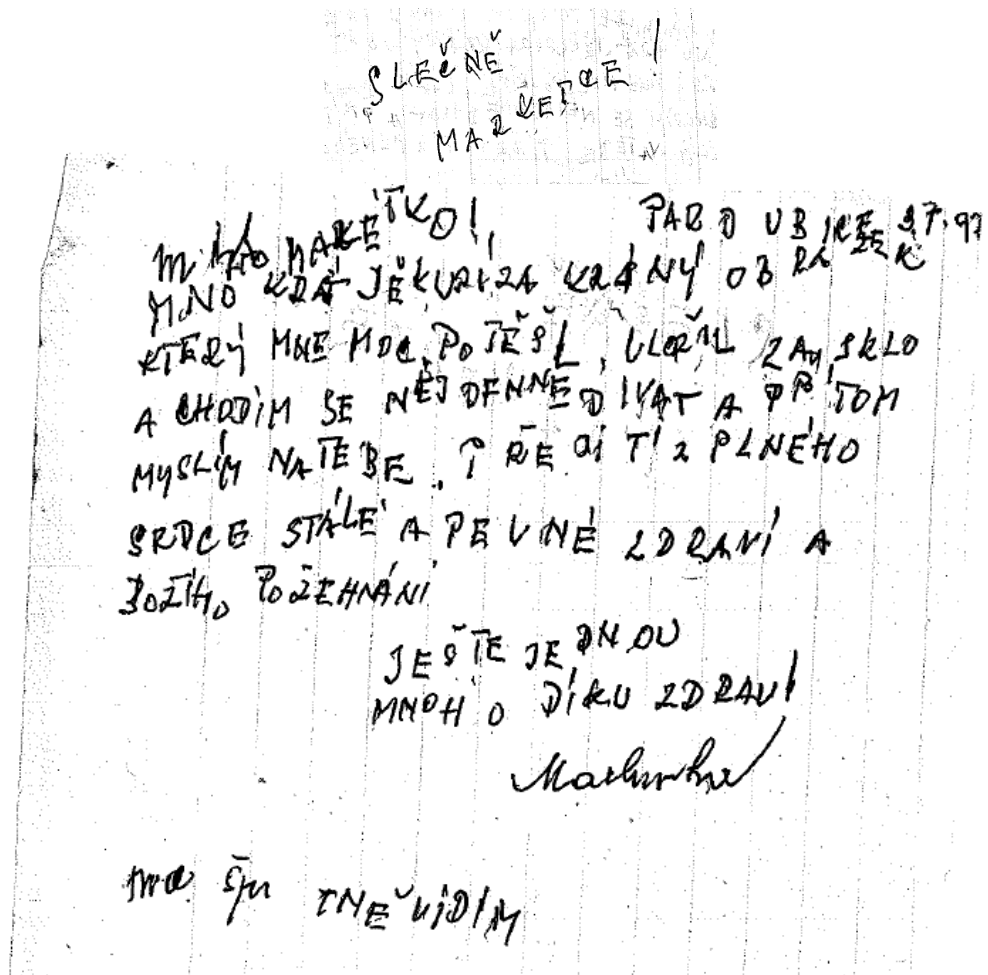 SLEČNĚ
MARKETCE!
MILÁ MARKÉTKO! PARDUBICE 3.7.97
MNO KRÁT DĚKUJI ZA KRÁSNÝ OBRÁZEK
KTERÝ MNE MOC POTĚŠIL, VLOŽIL ZA SKLO
A CHODÍM SE NĚJ DENNĚ DÍVAT A PŘITOM
MYSLÍM NA TEBE. PŘEJI TI Z PLNÉHO
SRDCE STÁLÉ A PEVNÉ ZDRAVÍ A
BOŽÍHO POŽEHNÁNÍ
JEŠTE JEDNOU
MNOHO DÍKU ZDRAVÍ
moc špa TNĚ VIDÍM